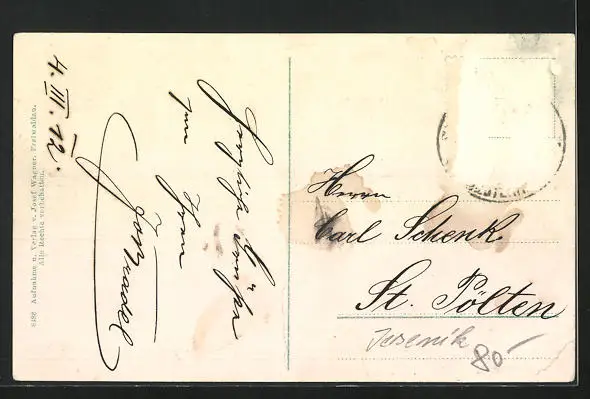 4. III. 12.
Herzliche Grüße
von Ihrem
8486 Aufnahme u. Verlag v. Josef Wagner, Freiwaldau.
Alle Rechte vorbehalten.
Herrn
Carl Schenk
St. Pölten
Jesenik
80-